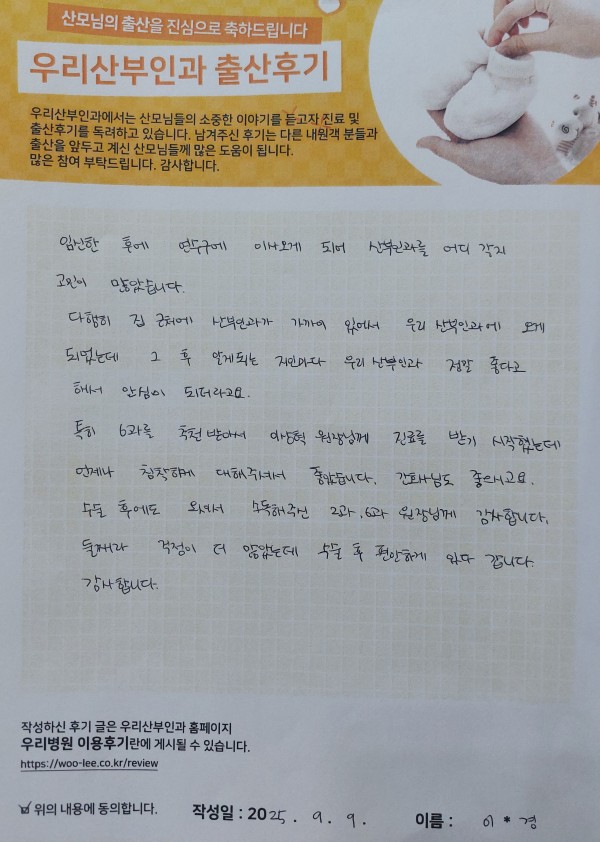 산모님의 출산을 진심으로 축하드립니다
우리산부인과 출산후기
우리산부인과에서는 산모님들의 소중한 이야기를 듣고자 진료 및
출산후기를 독려하고 있습니다. 남겨주신 후기는 다른 내원객 분들과
출산을 앞두고 계신 산모님들께 많은 도움이 됩니다.
많은 참여 부탁드립니다. 감사합니다.
임신한 후에 연수구에 이사오게 되어 산부인과를 어디 갈지
고민이 많았습니다.
다행히 집 근처에 산부인과가 가까이 있어서 우리 산부인과에 오게
되었는데 그 후 알게되는 지인마다 우리 산부인과 정말 좋다고
해서 안심이 되더라고요.
특히 6과를 추천 받아서 이상혁 원장님께 진료를 받기 시작했는데
언제나 침착하게 대해주셔서 좋았습니다. 간호사님도 좋으시고요.
수술 후에도 오셔서 소독해주신 2과, 6과 원장님께 감사합니다.
둘째라 걱정이 더 많았는데 수술 후 편안하게 있다 갑니다.
감사합니다.
작성하신 후기 글은 우리산부인과 홈페이지
우리병원 이용후기란에 게시될 수 있습니다.
https://woo-lee.co.kr/review
☑ 위의 내용에 동의합니다. 작성일 : 2025. 9. 9. 이름 : 이 * 경